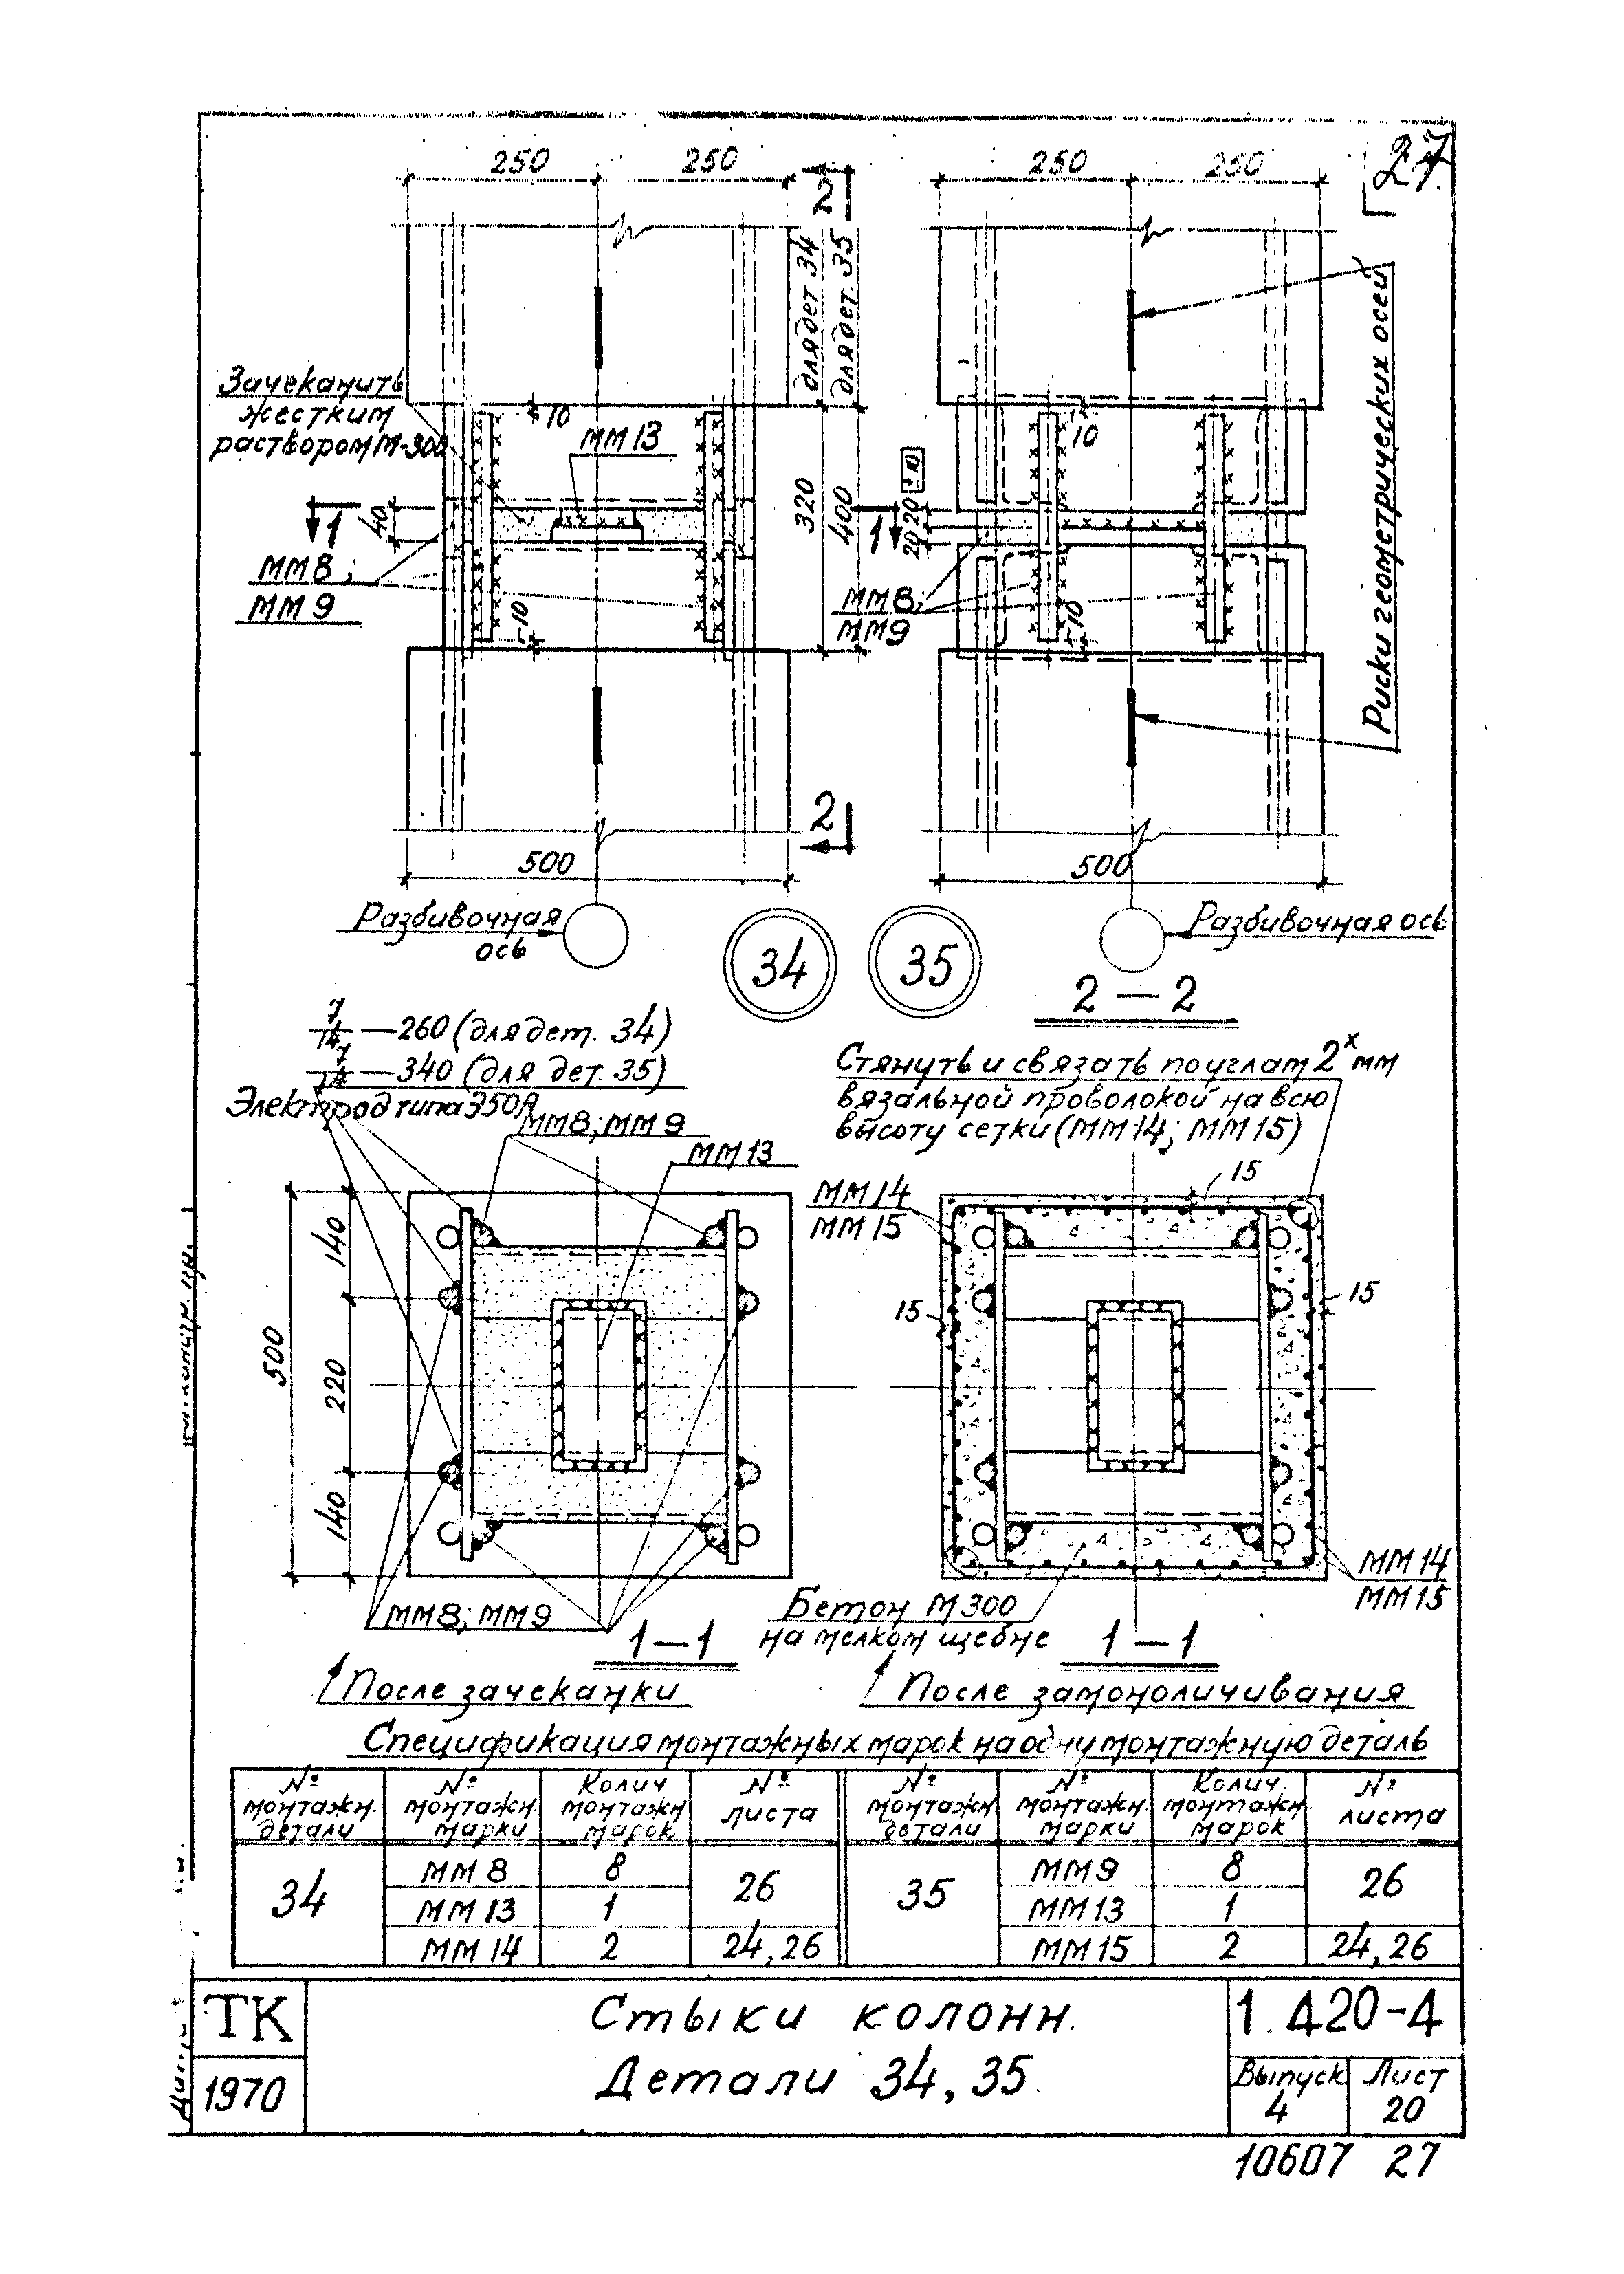 27
250 250
250 250
2
для дет. 34
для дет. 35
Риски геометрических осей
Зачеканить
жестким
раствором М-300
10
ММ 13
10
±10
320
400
40
1
1
20 20
ММ 8;
ММ 9
ММ 8;
ММ 9
10
10
2
500
500
Разбивочная
ось
34
35
Разбивочная ось
2 — 2
7/14 — 260 (для дет. 34)
7/14 — 340 (для дет. 35)
Электрод типа Э50А
ММ 8; ММ 9
ММ 13
Стянуть и связать по углам 2х мм
вязальной проволокой на всю
высоту сетки (ММ 14; ММ 15)
ММ 14
ММ 15
15
15
15
500
140
220
140
ММ 8; ММ 9
1—1
Бетон М 300
на мелком щебне
1—1
ММ 14
ММ 15
После зачеканки
После замоноличивания
Спецификация монтажных марок на одну монтажную деталь
№ монтажн. детали № монтажн. марки Колич монтажн. марок № листа № монтажн. детали № монтажн. марки Колич. монтажн. марок № листа
34 ММ 8 8 26 35 ММ 9 8 26
ММ 13 1 ММ 13 1
ММ 14 2 24,26 ММ 15 2 24,26
ТК
1970
Стыки колонн.
Детали 34, 35.
1.420-4
Выпуск Лист
4 20
10607 27